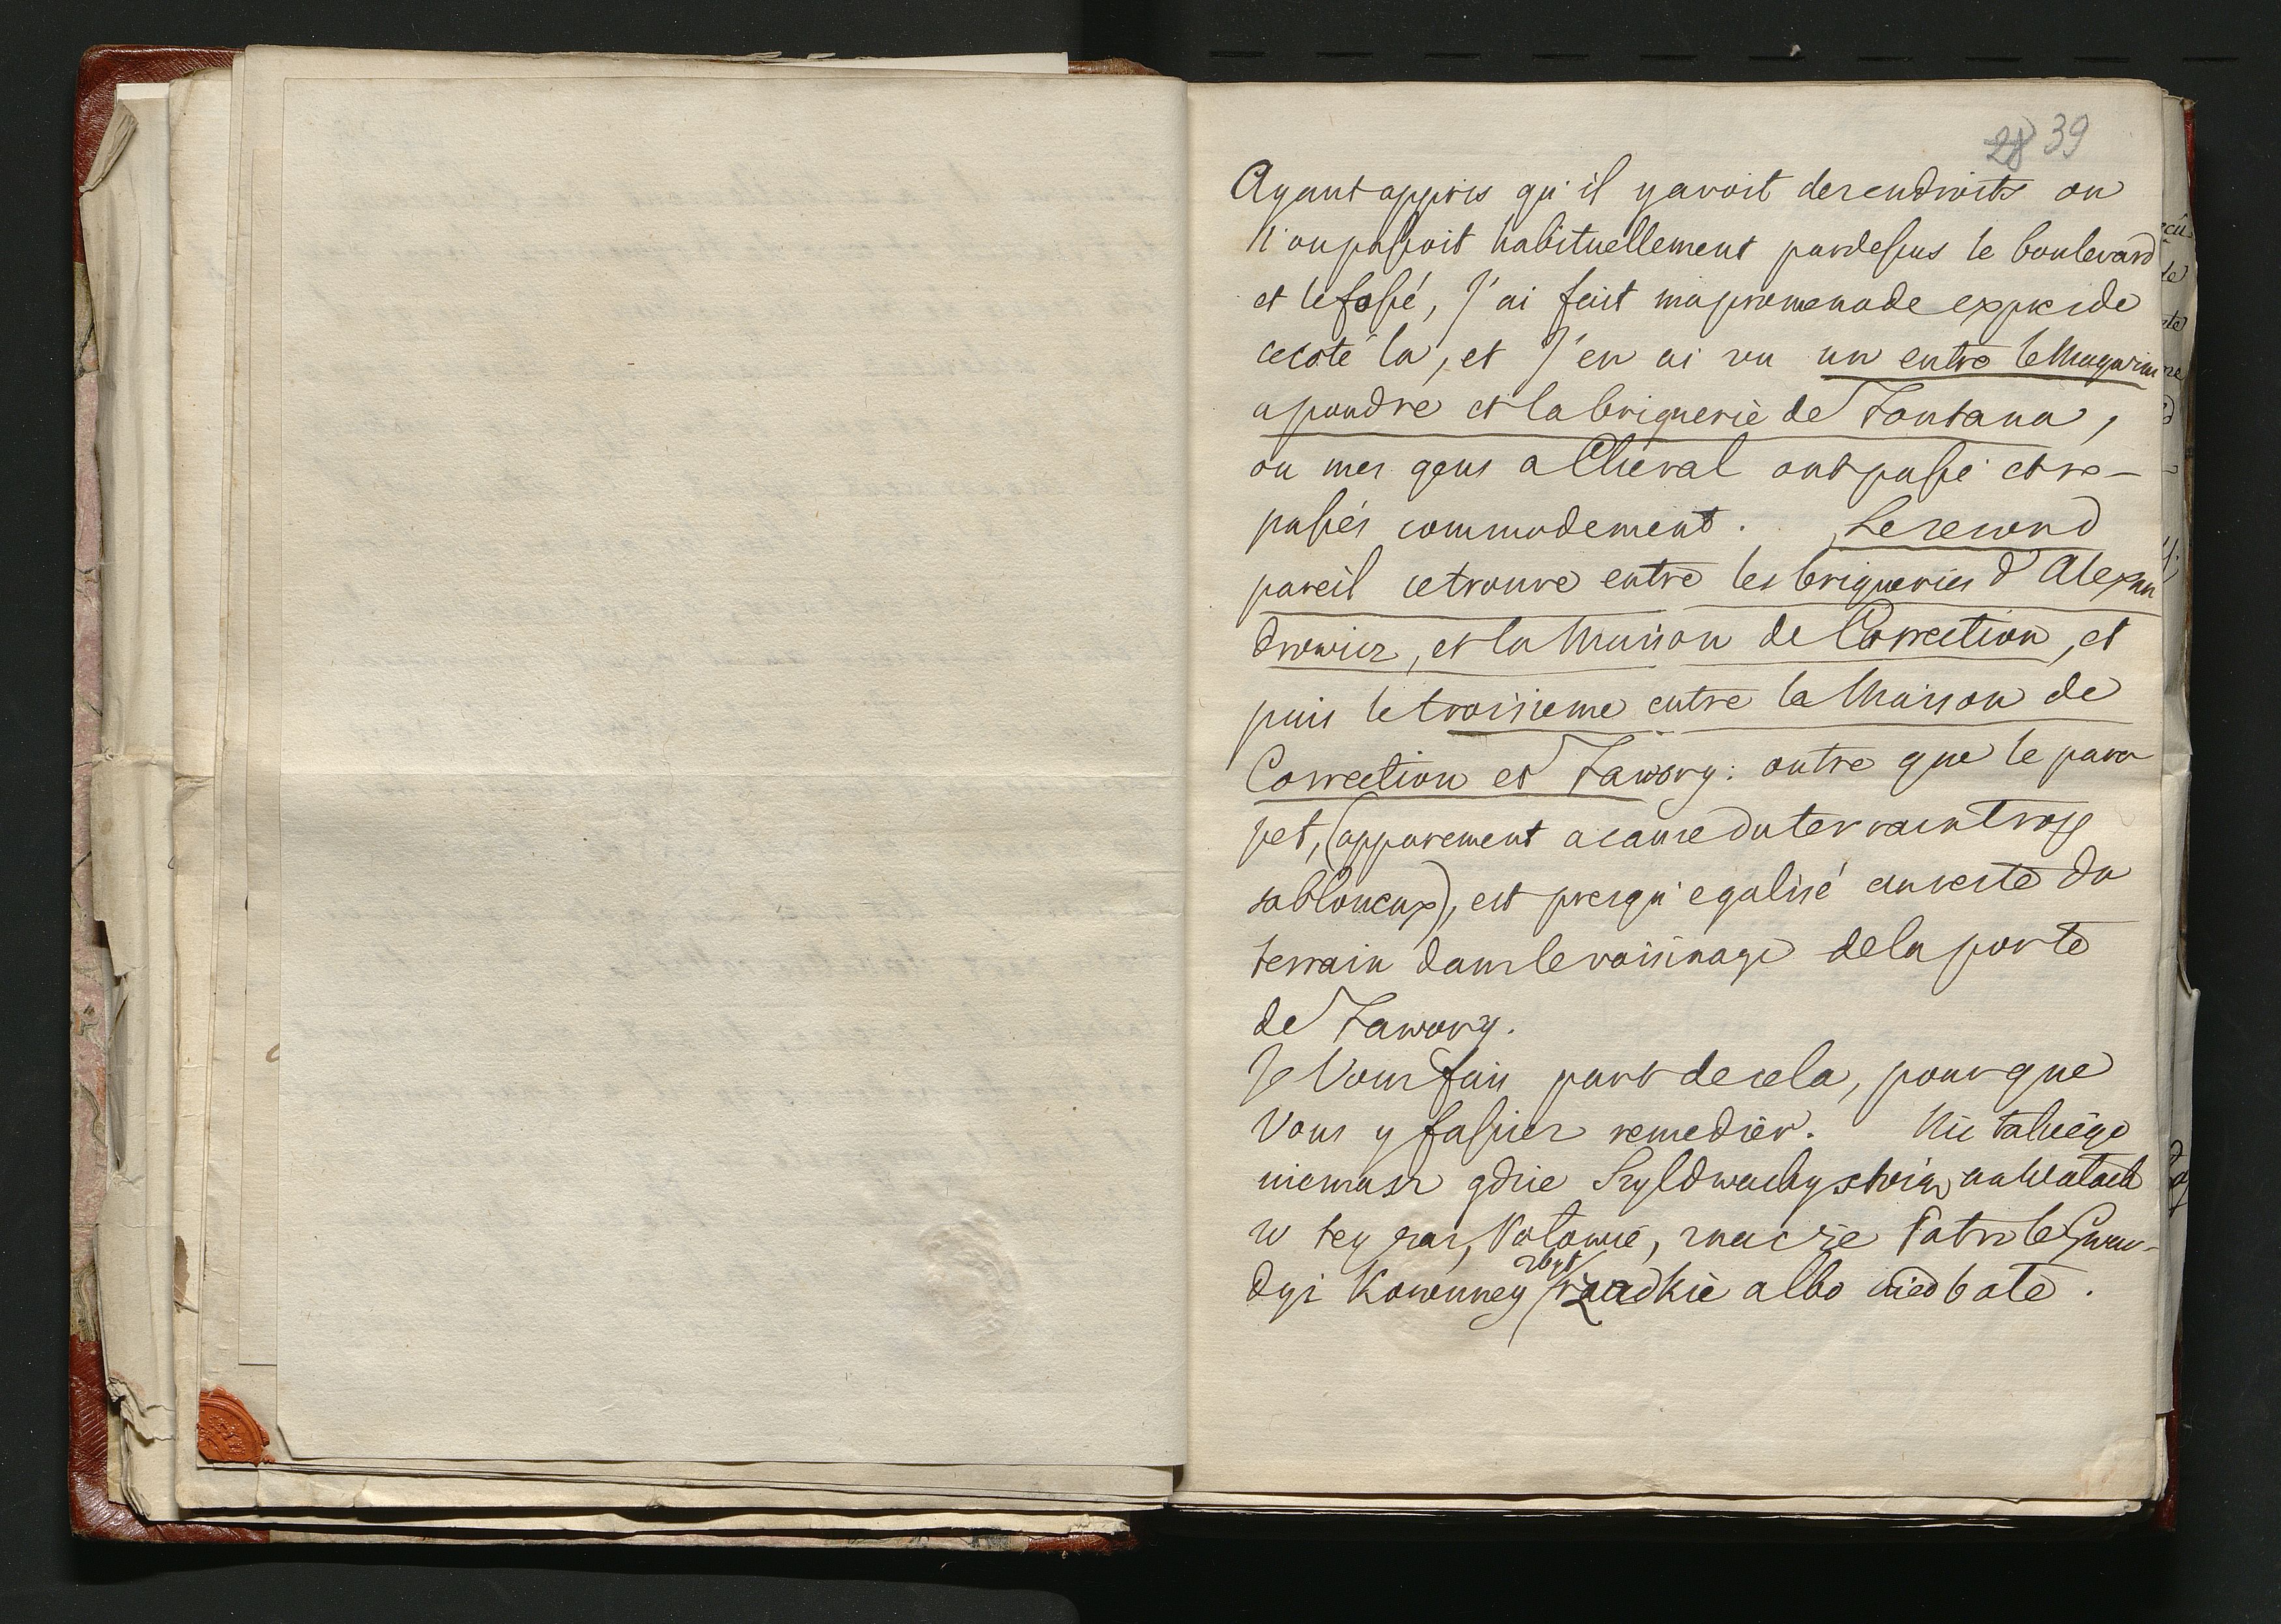 28 39
Ayant appris qu'il y avoit des endroits ou
l'on passoit habituellement pardessus le boulevard
et le fossé, J'ai fait ma promenade expres de
ce coté la, et J'en ai vu un entre le Magazin
a poudre et la briquerie de Fontana,
ou mes gens a Cheval ont passé et re-
passés commodement. Le second
pareil se trouve entre les briqueries d'Alexan
drowicz, et la Maison de Correction, et
puis le troisieme entre la Maison de
Correction et Jawory: outre que le para
pet, (apparement a cause du terrain trop
sabloneux), est presqu'egalisé au reste du
terrain dans le voisinage de la porte
de Jawory.
Je Vous fais part de cela, pour que
Vous y fassiez remedier. Nic takiego
niemasz gdzie Szyldwachy stoią
w tey zas Połowie, znac że Patrole Gwar-
dyi Konnney zbyt rzadkie albo niedbałe.